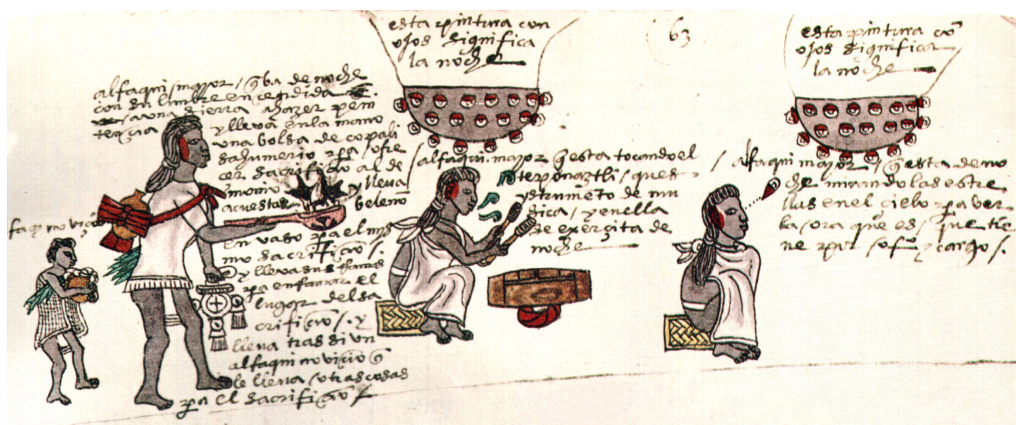 esta pintura con
ojos significa
la noche
63
esta pintura cõ
ojos significa
la noche
alfaqui mayor / q̃ va de noche
con su lunbre encendida
a una sierra a hazer peni
tençia
y lleva en la mano
una bolsa de copal
sahumerio pa / ofre
cer sacrifiçio al de
monio
y lleva
acuestas
beleño
en vaso pa el mis
mo sacrifiçio /
y lleva sus
pa enfamar el
lugar del sa
crifiçio / y
lleva tras si un
alfaqui noviçio q̃
le lleva / otras cosas
pa el sacrifiçio /
faqi noviçio
alfaqui mayor q̃ esta tocando el
teponaztli / ques
ystrumẽto de mu
sica / y en ella
se exerçita de
noche
alfaqui mayor / q̃ esta de no
che mirando las estre
llas en el çielo pa ver
la ora que es / que tie
ne por su ofiº y cargo /